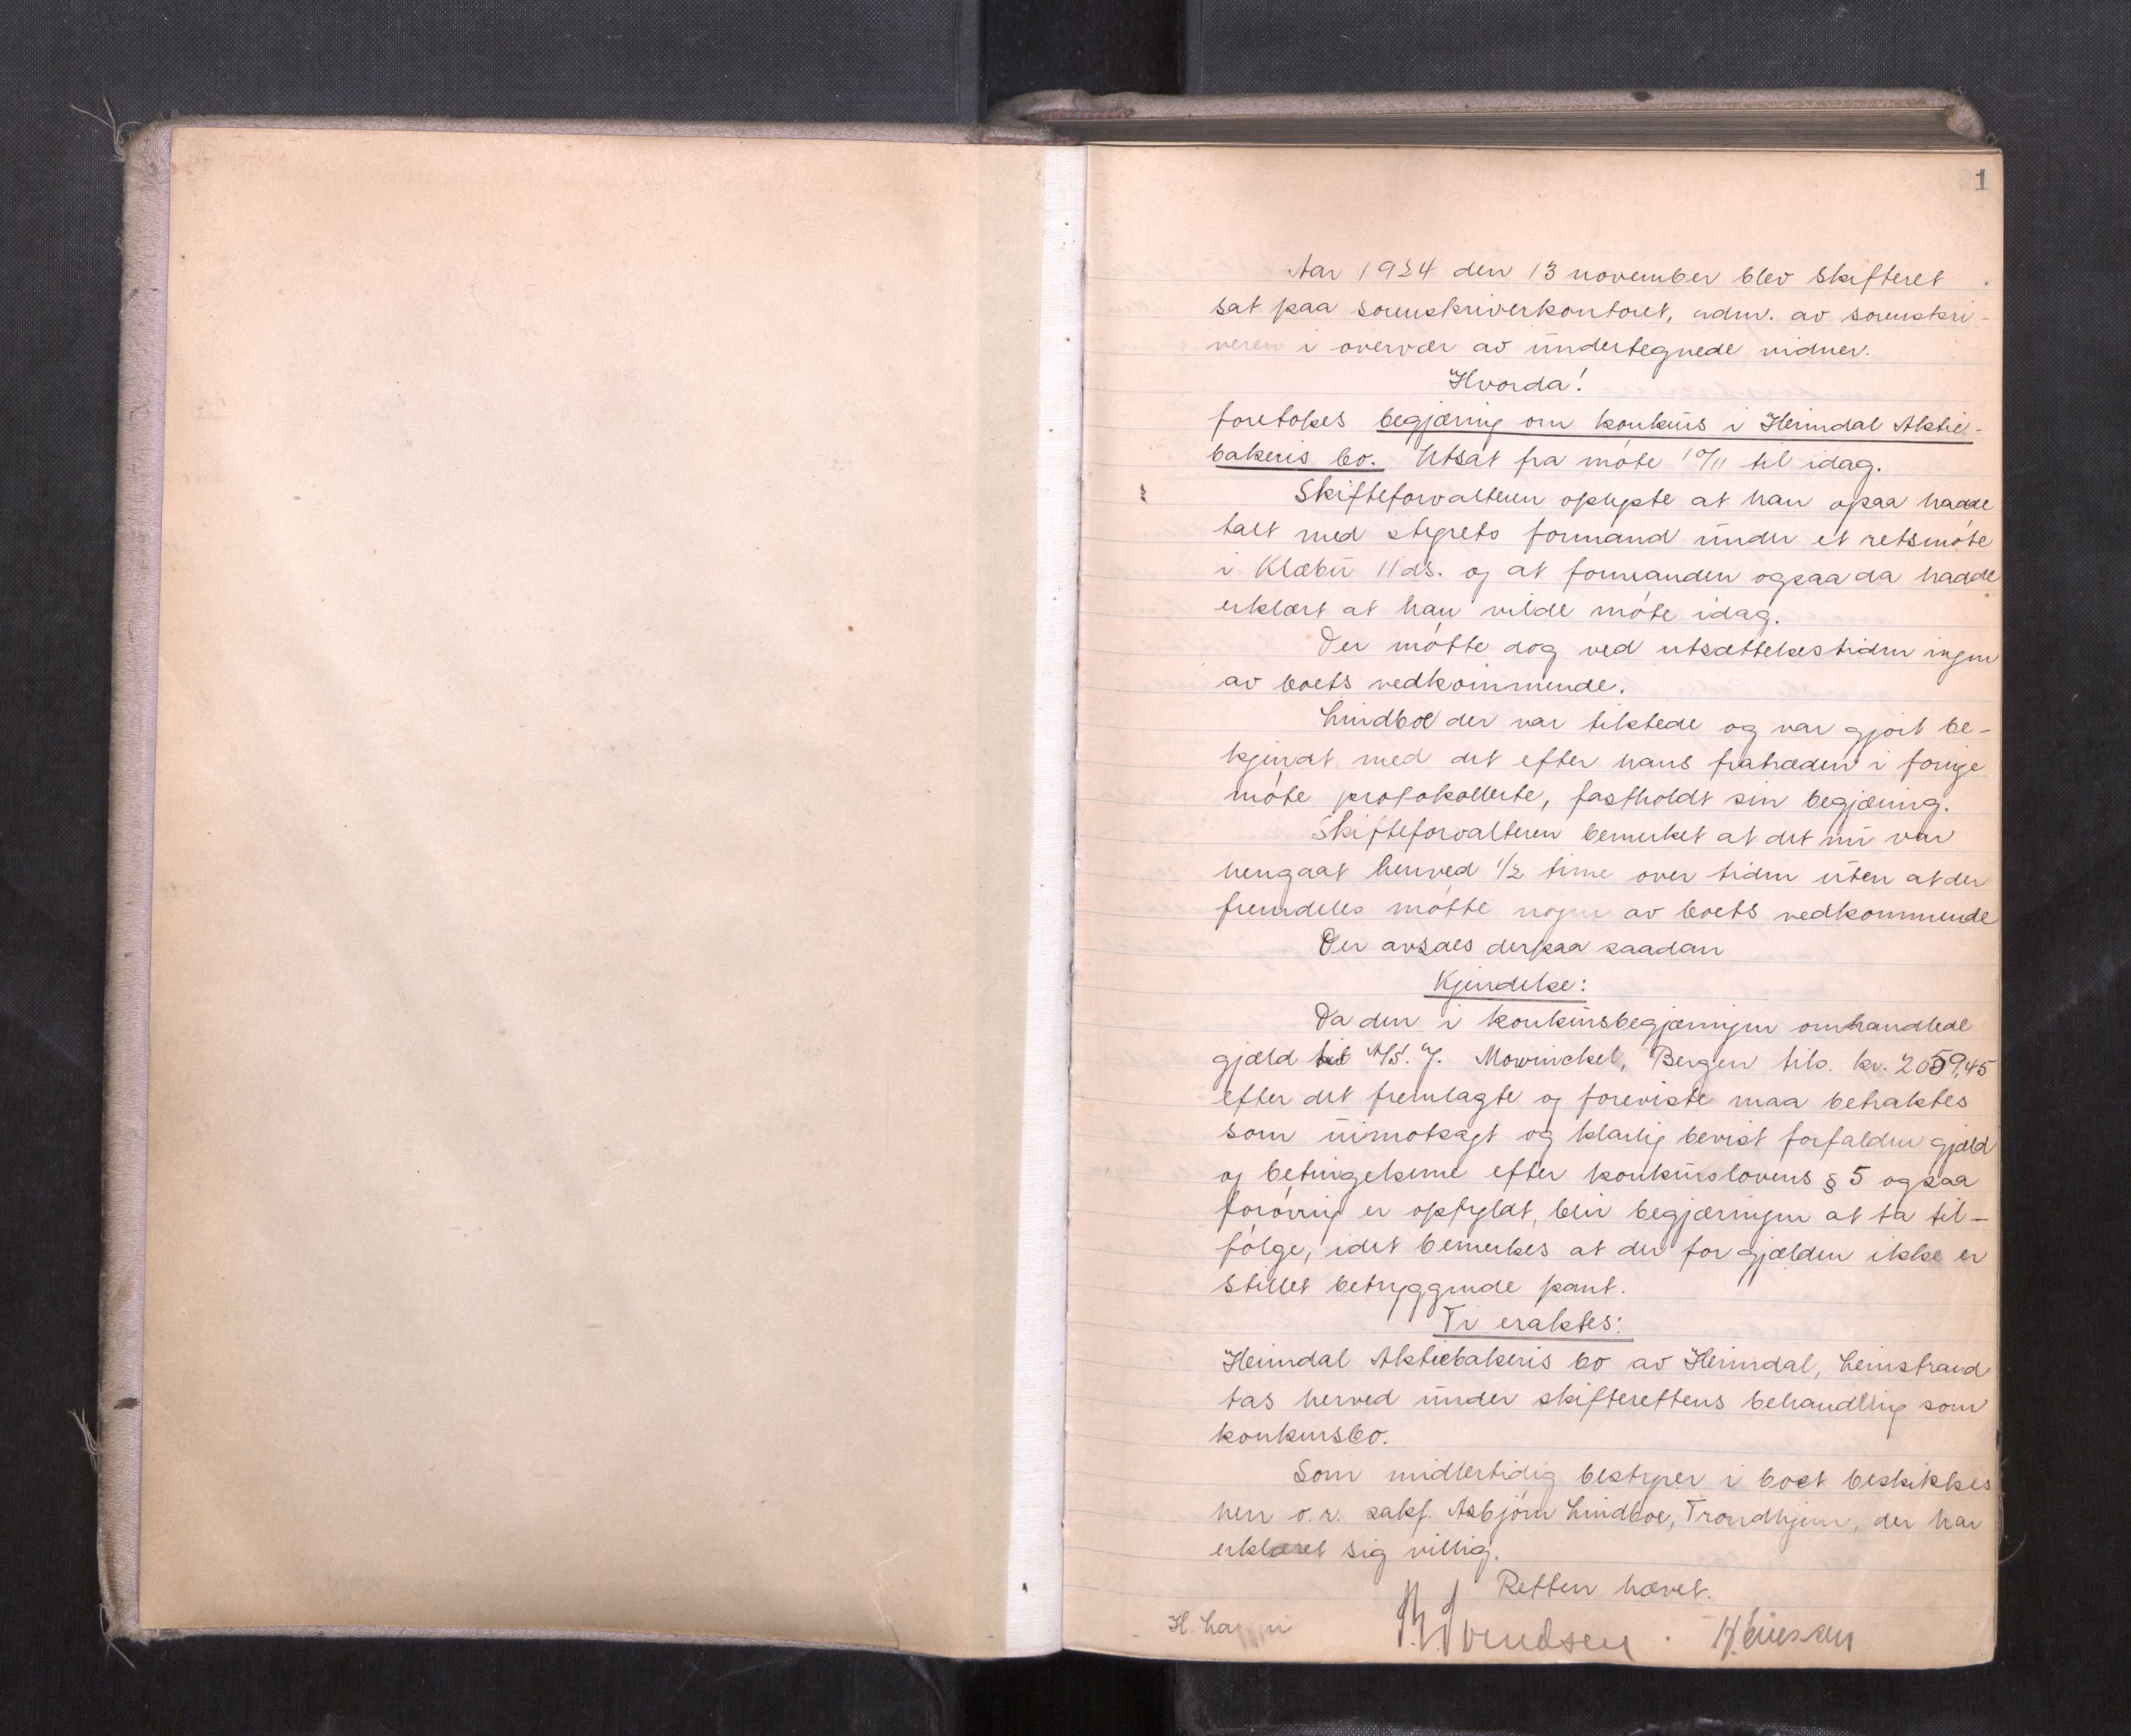 1
Aar 1924 den 13 november blev skifteret
sat paa sorenskriverkontoret, adm. av sorenskri-
veren i overvær av undertegnede vidner.
Hvorda!
foretokes begjæring om konkurs i Heimdal Aktie-
bakeris bo. Utsat fra møte 10/11 til idag.
Skifteforvalteren oplyste at han ogsaa hadde
talt med styrets formand under et retsmøte
i Klæbu 11 ds. og at formanden ogsaa da hadde
erklært at han vilde møte idag.
Der møtte dog ved utsættelsestiden ingen
av boets vedkommende.
Lindboe der var tilstede og var gjort be-
kjendt med det efter hans fratræden i forrige
møte protokollerte, fastholdt sin begjæring.
Skifteforvalteren bemerket at det nu var
hengaat henved 1/2 time over tiden uten at der
fremdeles møtte nogen av boets vedkommende
Der avsaes derpaa saadan
Kjendelse:
Da den i konkursbegjæringen omhandlede
gjæld til A/S. J. Mowinckel, Bergen tils. kr. 2059,45
efter det fremlagte og foreviste maa betraktes
som uimotsagt og klarlig bevist forfalden gjæld
og betingelserne efter konkurslovens § 5 ogsaa
forøvrig er opfyldt, blir begjæringen at ta til-
følge, idet bemerkes at der for gjælden ikke er
stillet betryggende pant.
Ti eraktes:
Heimdal Aktiebakeris bo av Heimdal, Leinstrand
tas herved under skifterettens behandling som
konkursbo.
Som midlertidig bestyrer i boet beskikkes
herr o.r. sakf. Asbjørn Lindboe, Trondhjem, der har
erklæret sig villig.
Retten hævet.
H. Svendsen